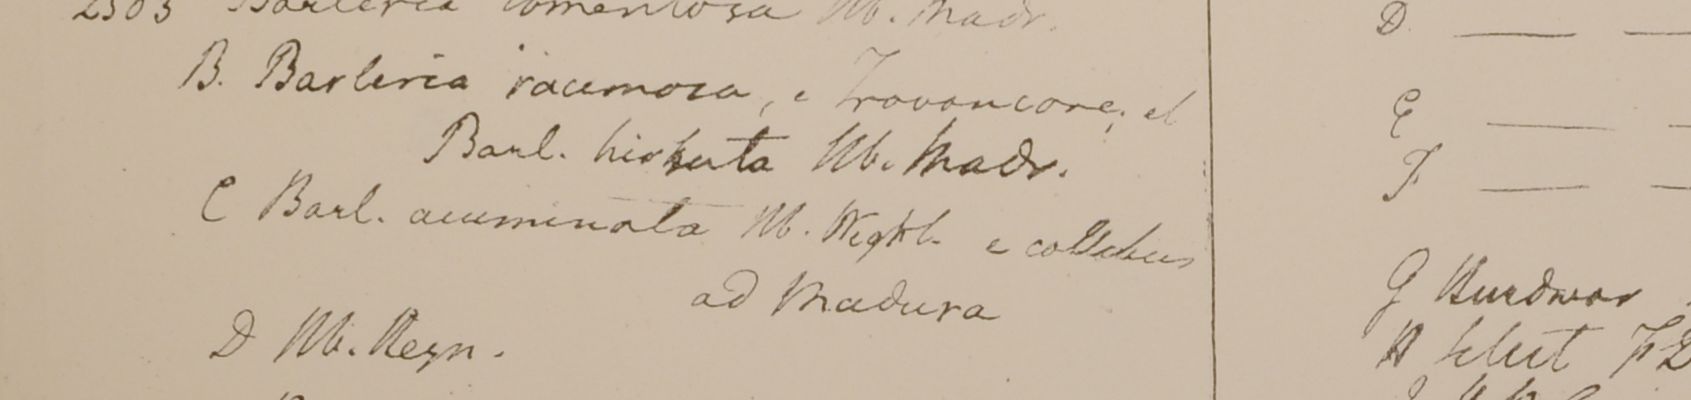 2505 Barleria tomentosa Hb. Madr.
B. Barleria racemosa, e Travancore, et
Barl. hirsuta Hb. Madr.
C Barl. acuminata Hb. Wight. e collibus
ad Madura
D Hb. Heyn.
D.
E
F
G Hurdwar
H